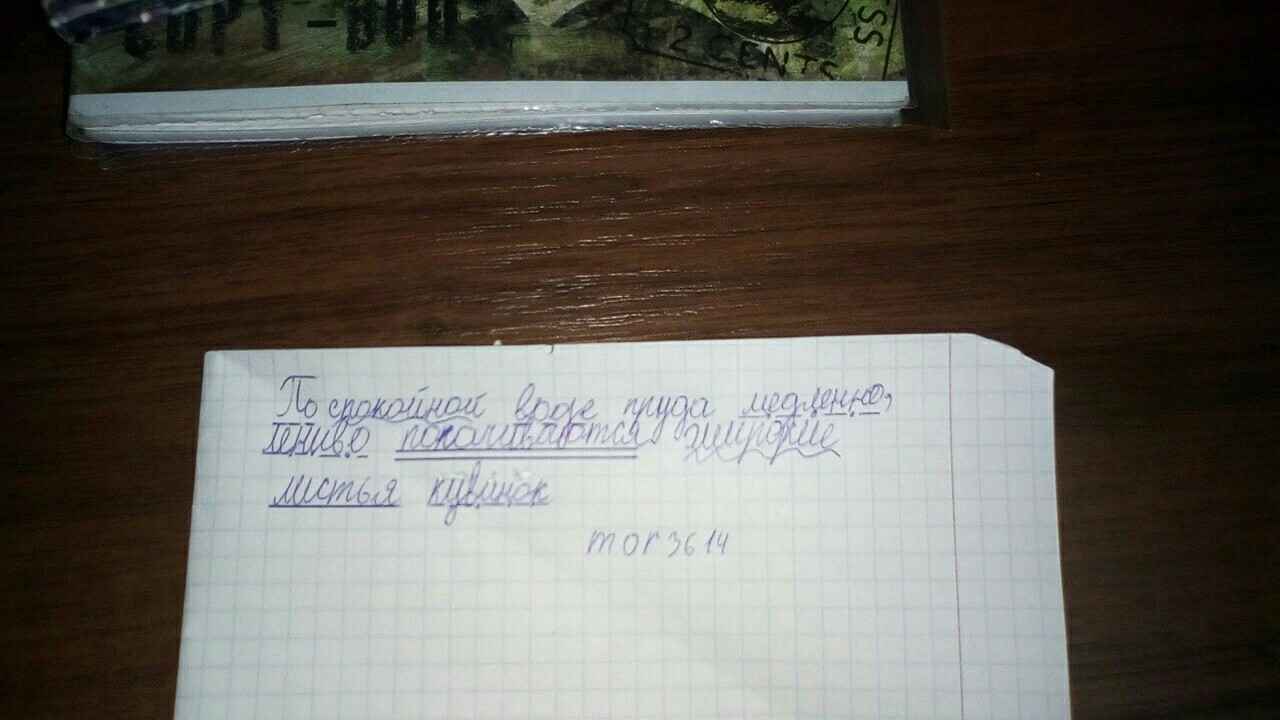 2 CENTS
По спокойной воде пруда медленно,
лениво покачиваются широкие
листья кувшинок
mor3614